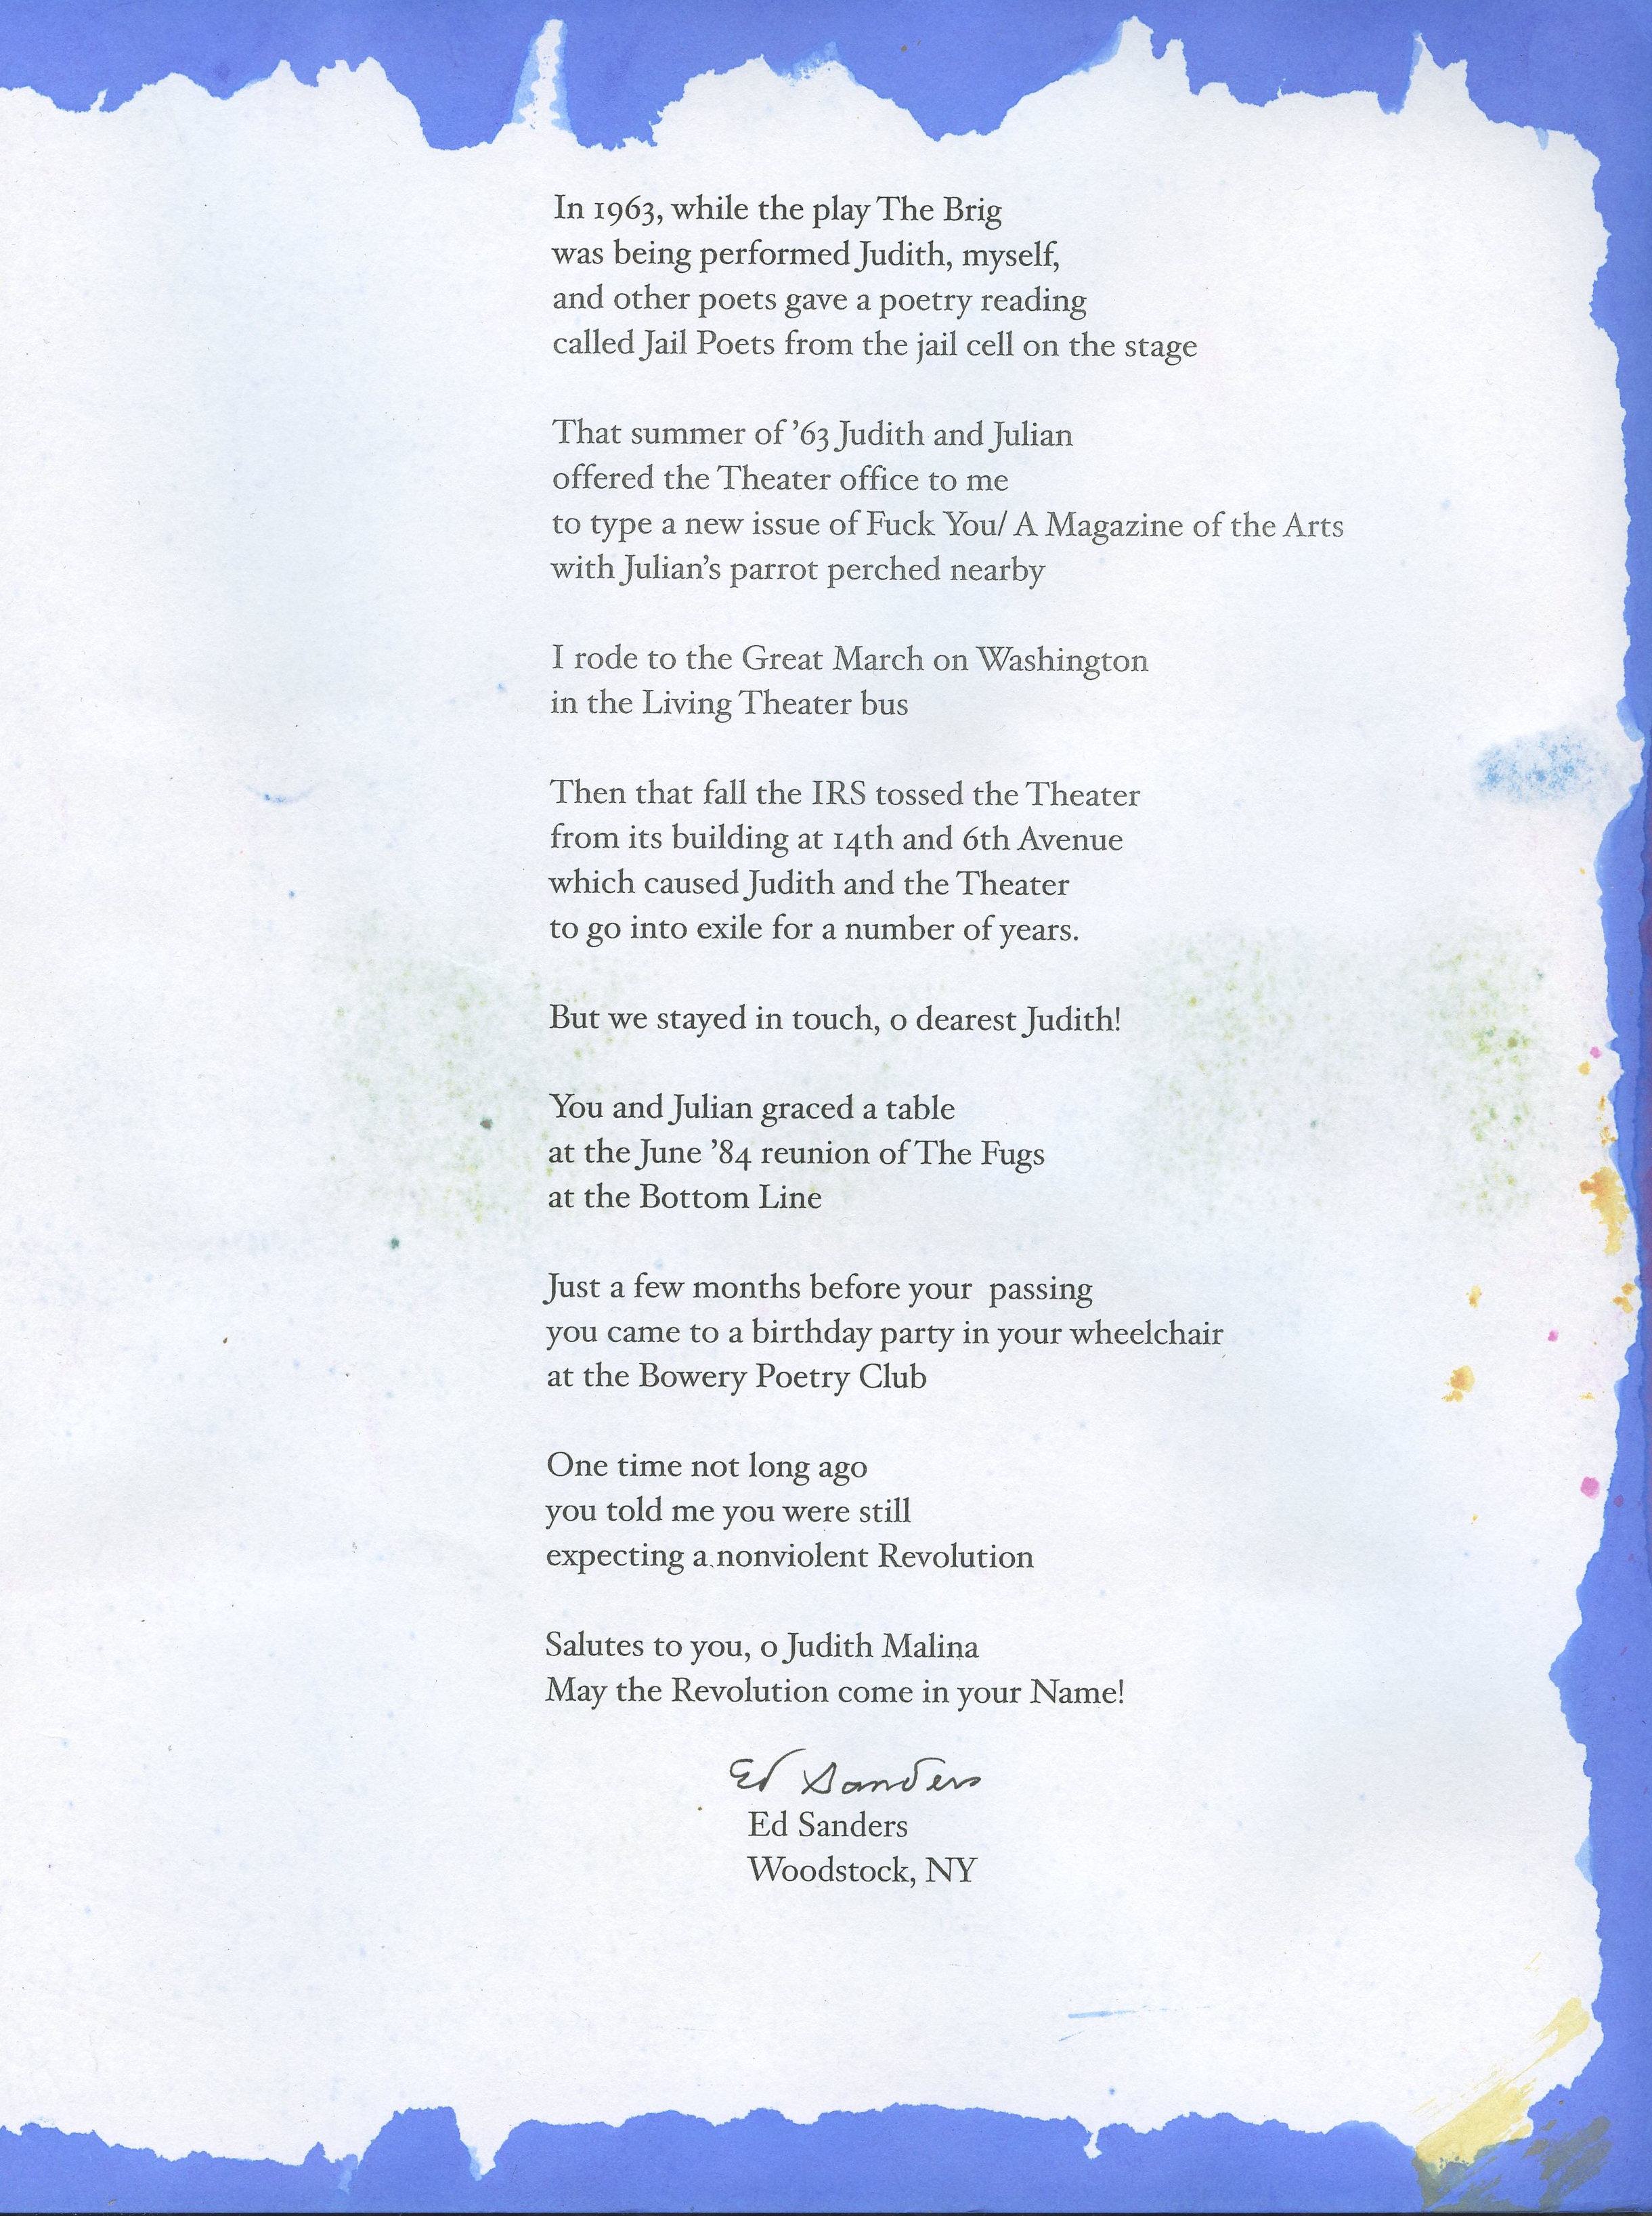 In 1963, while the play The Brig
was being performed Judith, myself,
and other poets gave a poetry reading
called Jail Poets from the jail cell on the stage

That summer of ’63 Judith and Julian
offered the Theater office to me
to type a new issue of Fuck You/ A Magazine of the Arts
with Julian’s parrot perched nearby

I rode to the Great March on Washington
in the Living Theater bus

Then that fall the IRS tossed the Theater
from its building at 14th and 6th Avenue
which caused Judith and the Theater
to go into exile for a number of years.

But we stayed in touch, o dearest Judith!

You and Julian graced a table
at the June ’84 reunion of The Fugs
at the Bottom Line

Just a few months before your  passing
you came to a birthday party in your wheelchair
at the Bowery Poetry Club

One time not long ago
you told me you were still
expecting a nonviolent Revolution

Salutes to you, o Judith Malina
May the Revolution come in your Name!

Ed Sanders
Ed Sanders
Woodstock, NY